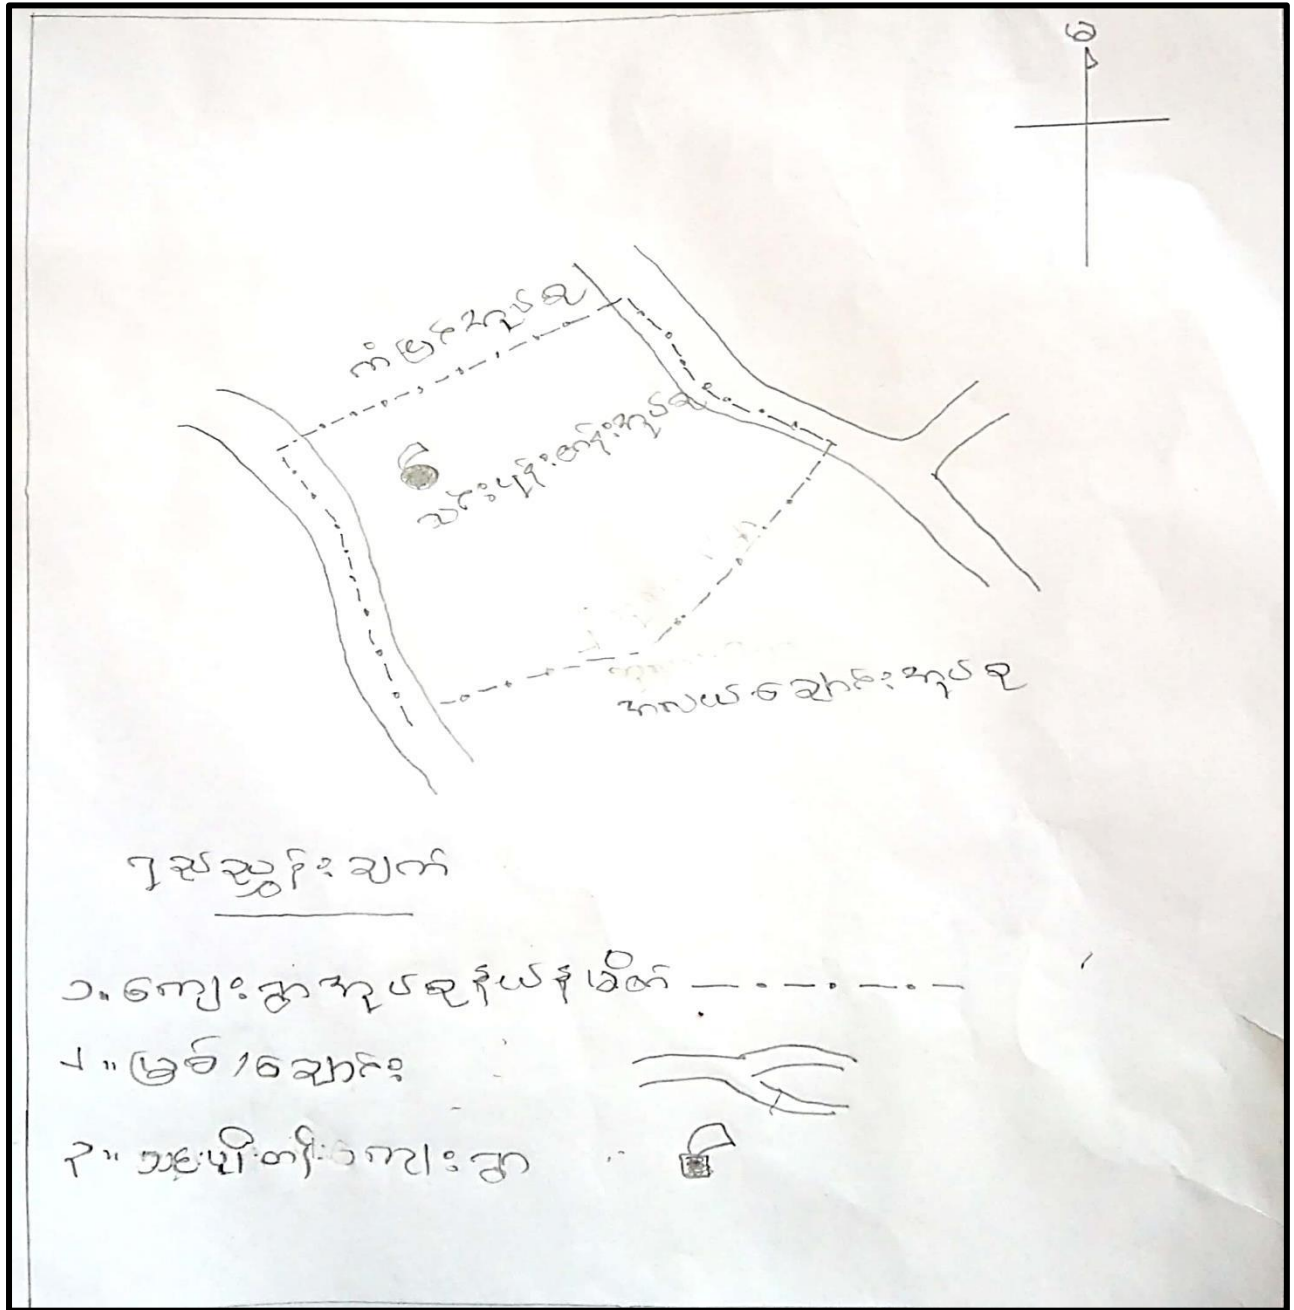 မ
ကံမြင့်အုပ်စု
သင်းပုန်းတန်းအုပ်စု
အလယ်ချောင်းအုပ်စု
ရည်ညွှန်းချက်
၁။ ကျေးရွာအုပ်စုနယ်နမိတ်
၂။ မြစ်/ချောင်း
၃။ ကျေးရွာ